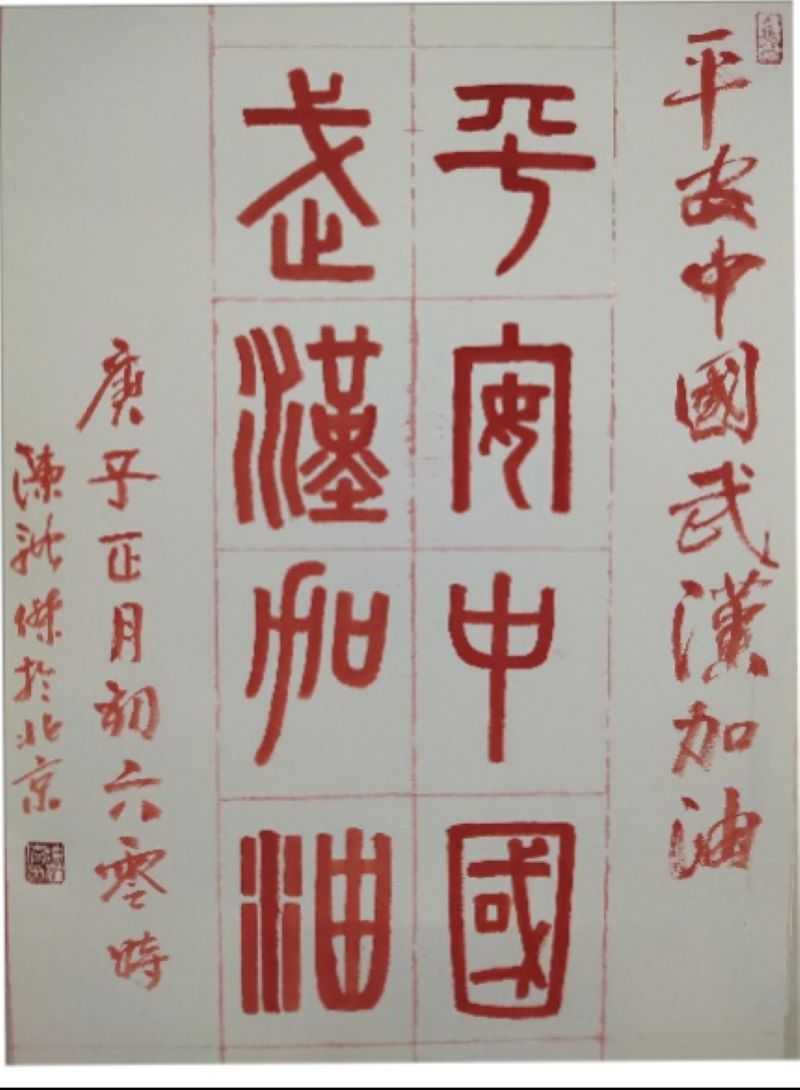 平安中國武漢加油
平安中國
武漢加油
庚子正月初六零時
陳
傑於北京